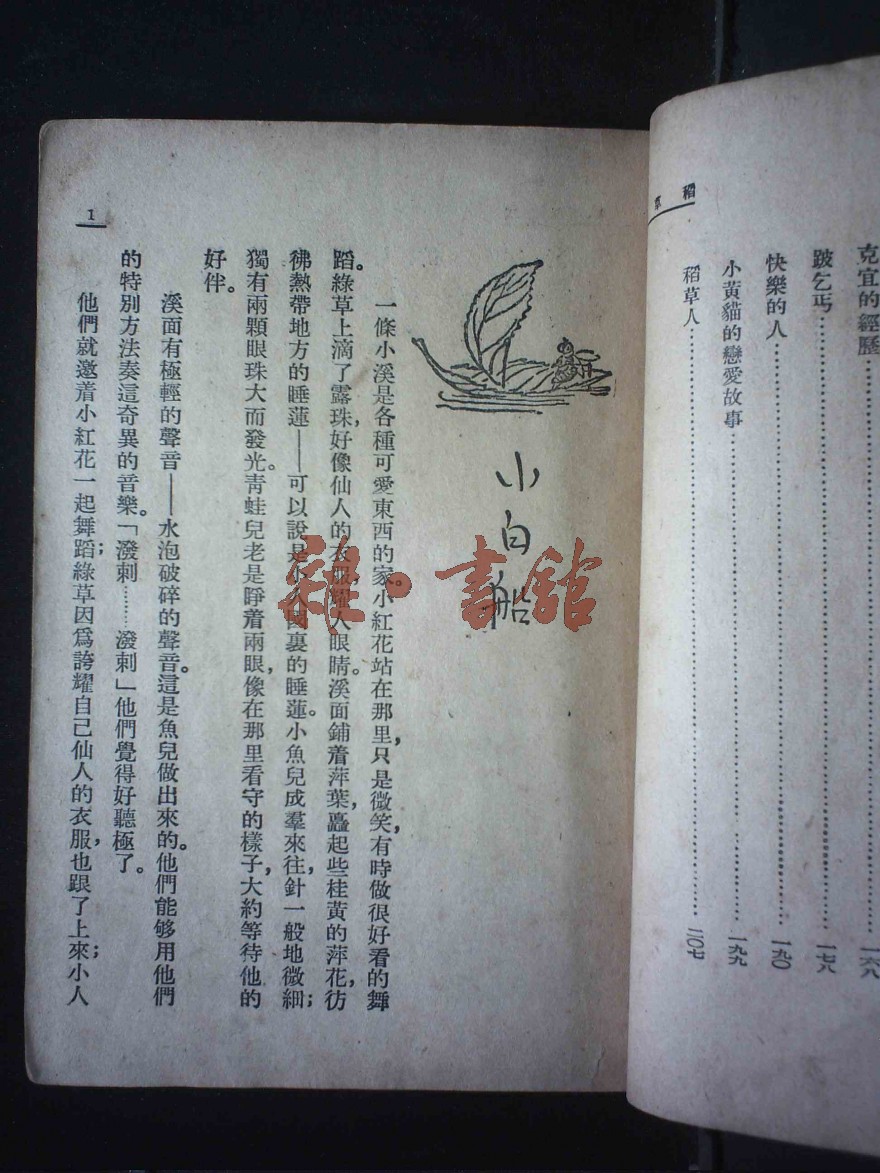 稻草
克宜的經歷……一六八
跛乞丐……一七八
快樂的人……一九〇
小黃貓的戀愛故事……一九九
稻草人……二〇七
小白船
一條小溪是各種可愛東西的家。小紅花站在那里，只是微笑，有時做很好看的舞
蹈。綠草上滴了露珠，好像仙人的衣服，耀人眼睛。溪面鋪着萍葉，矗起些桂黃的萍花，彷
彿熱帶地方的睡蓮——可以說是小人國裏的睡蓮。小魚兒成羣來往，針一般地微細；
獨有兩顆眼珠大而發光。青蛙兒老是睜着兩眼，像在那里看守的樣子，大約等待他的
好伴。
溪面有極輕的聲音——水泡破碎的聲音。這是魚兒做出來的。他們能够用他們
的特別方法奏這奇異的音樂。「潑剌……潑剌」他們覺得好聽極了。
他們就邀着小紅花一起舞蹈；綠草因爲誇耀自己仙人的衣服，也跟了上來；小人
1
雜·書館